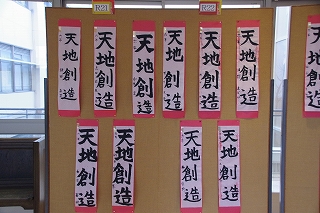 R21
R22
天地創造
天地創造
天地創造
天地創造
天地創造
天地創造
天地創造
天地創造
天地創造
天地創造